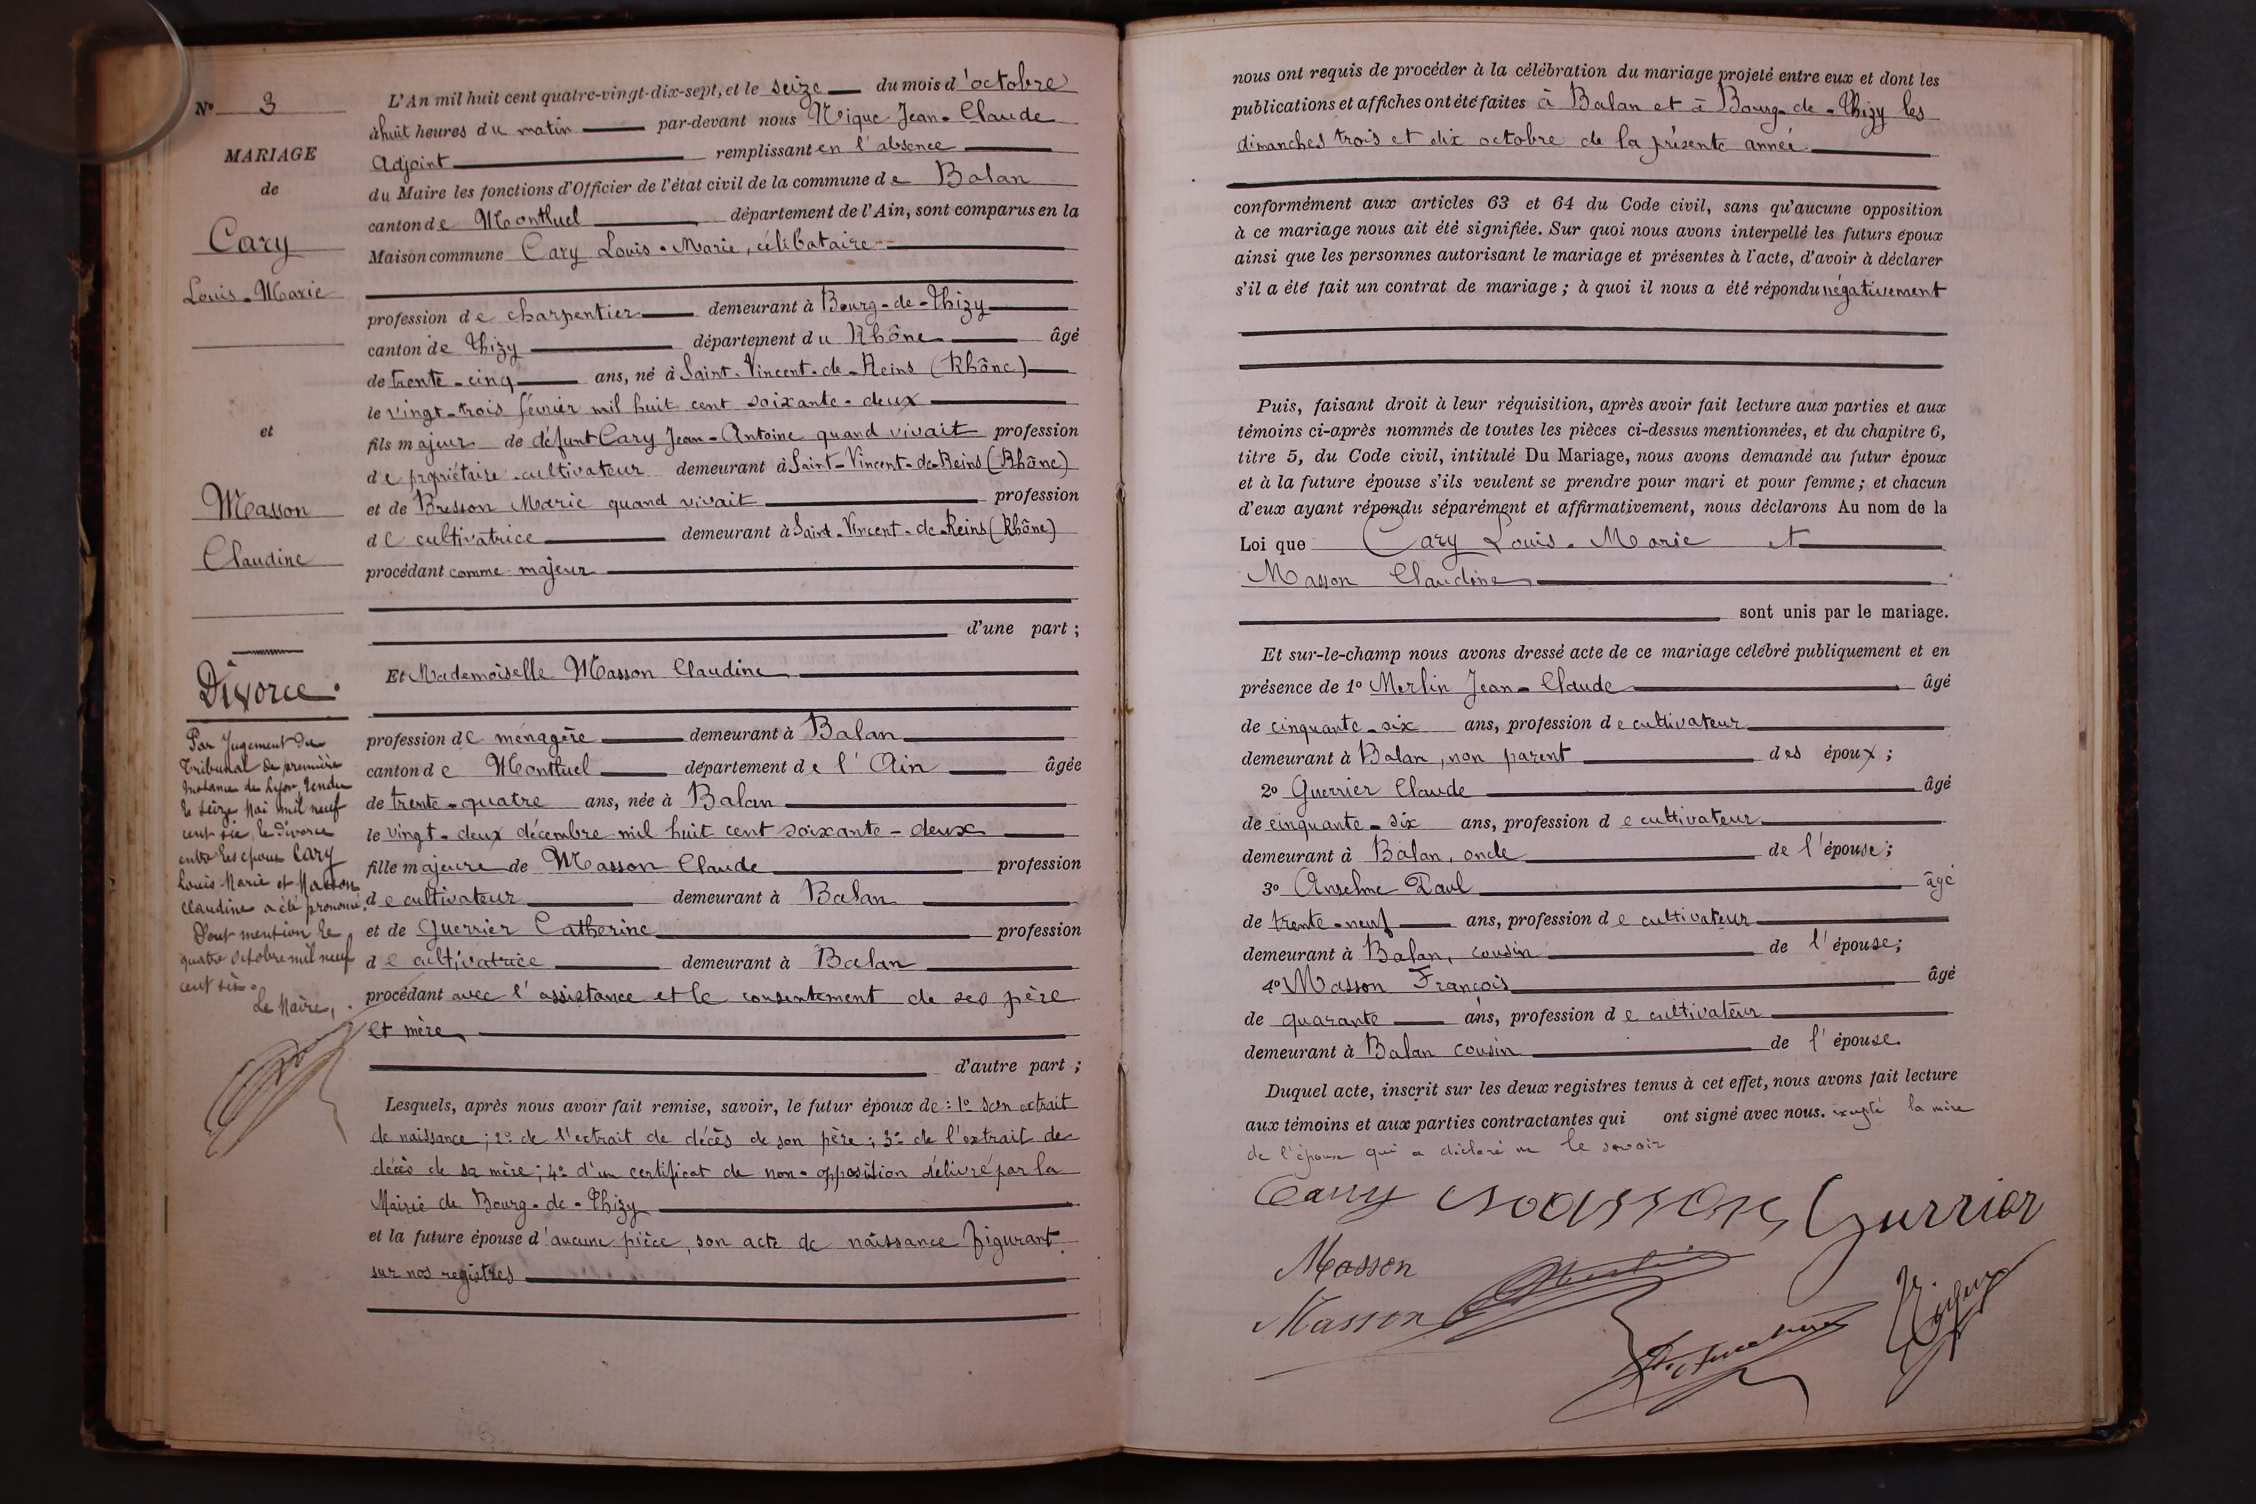 N° 3
MARIAGE
de
Cary
Louis-Marie
et
Masson
Claudine
Divorce.
Par Jugement du
Tribunal de première
Instance de Lyon, rendu
le seize Mai mil neuf
cent six, le divorce
entre les époux Cary
Louis Marie et Masson
Claudine a été prononcé.
Dont mention le
quatre Octobre mil neuf
cent six.
Le Maire,
L'An mil huit cent quatre-vingt-dix-sept, et le seize du mois d'octobre
à huit heures du matin par-devant nous Nique Jean-Claude
Adjoint remplissant en l'absence
du Maire les fonctions d'Officier de l'état civil de la commune de Balan
canton de Montluel département de l'Ain, sont comparus en la
Maison commune Cary Louis-Marie, célibataire
profession de charpentier demeurant à Bourg-de-Thizy
canton de Thizy département du Rhône âgé
de trente-cinq ans, né à Saint-Vincent-de-Reins (Rhône)
le vingt-trois février mil huit cent soixante-deux
fils majeur de défunt Cary Jean-Antoine quand vivait profession
de propriétaire-cultivateur demeurant à Saint-Vincent-de-Reins (Rhône)
et de Bresson Marie quand vivait profession
de cultivatrice demeurant à Saint-Vincent-de-Reins (Rhône)
procédant comme majeur
d'une part ;
Et Mademoiselle Masson Claudine
profession de ménagère demeurant à Balan
canton de Montluel département de l'Ain âgée
de trente-quatre ans, née à Balan
le vingt-deux décembre mil huit cent soixante-deux
fille majeure de Masson Claude profession
de cultivateur demeurant à Balan
et de Guerrier Catherine profession
de cultivatrice demeurant à Balan
procédant avec l'assistance et le consentement de ses père
et mère
d'autre part ;
Lesquels, après nous avoir fait remise, savoir, le futur époux de : 1° son extrait
de naissance ; 2° de l'extrait de décès de son père ; 3° de l'extrait de
décès de sa mère ; 4° d'un certificat de non-opposition délivré par la
Mairie de Bourg-de-Thizy
et la future épouse d'aucune pièce, son acte de naissance figurant
sur nos registres
nous ont requis de procéder à la célébration du mariage projeté entre eux et dont les
publications et affiches ont été faites à Balan et à Bourg-de-Thizy les
dimanches trois et dix octobre de la présente année
conformément aux articles 63 et 64 du Code civil, sans qu'aucune opposition
à ce mariage nous ait été signifiée. Sur quoi nous avons interpellé les futurs époux
ainsi que les personnes autorisant le mariage et présentes à l'acte, d'avoir à déclarer
s'il a été fait un contrat de mariage ; à quoi il nous a été répondu négativement
Puis, faisant droit à leur réquisition, après avoir fait lecture aux parties et aux
témoins ci-après nommés de toutes les pièces ci-dessus mentionnées, et du chapitre 6,
titre 5, du Code civil, intitulé Du Mariage, nous avons demandé au futur époux
et à la future épouse s'ils veulent se prendre pour mari et pour femme ; et chacun
d'eux ayant répondu séparément et affirmativement, nous déclarons Au nom de la
Loi que Cary Louis-Marie et
Masson Claudine
sont unis par le mariage.
Et sur-le-champ nous avons dressé acte de ce mariage célébré publiquement et en
présence de 1° Merlin Jean-Claude âgé
de cinquante-six ans, profession de cultivateur
demeurant à Balan, non parent des époux ;
2° Guerrier Claude âgé
de cinquante-six ans, profession de cultivateur
demeurant à Balan, oncle de l'épouse ;
3° Anselme Paul âgé
de trente-neuf ans, profession de cultivateur
demeurant à Balan, cousin de l'épouse ;
4° Masson François âgé
de quarante ans, profession de cultivateur
demeurant à Balan cousin de l'épouse.
Duquel acte, inscrit sur les deux registres tenus à cet effet, nous avons fait lecture
aux témoins et aux parties contractantes qui ont signé avec nous. excepté la mère
de l'épouse qui a déclaré ne le savoir
Cary Masson Gurrier
Masson
Masson Merlin